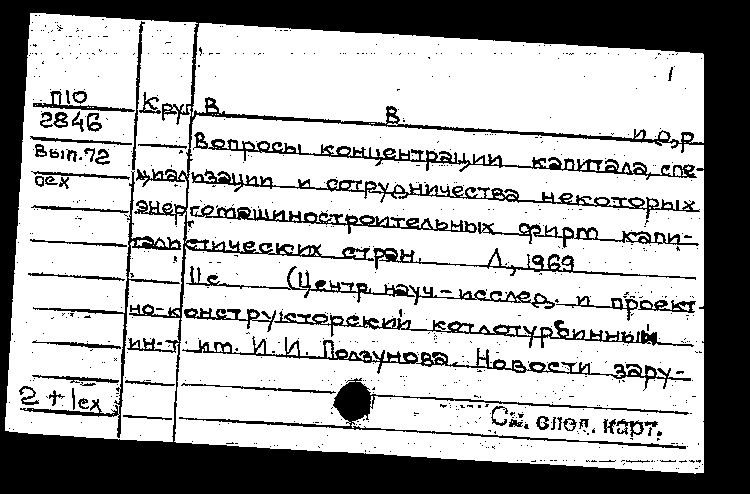 1
П10
2846
Вып.72
0ех
Круг, В. В. п о, р
Вопросы концентрации капитала, спе-
циализации и сотрудничества некоторых
энергомашиностроительных фирм капи-
талистических стран. Л., 1969
11 с. (Центр. науч.-исслед. и проект-
но-конструкторский котлотурбинный
ин-т им. И. И. Ползунова. Новости зару-
2 + 1ех
См. след. карт.